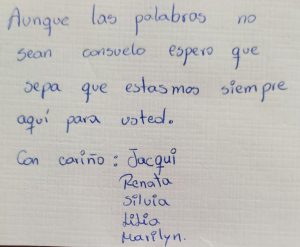 Aunque las palabros no
sean consuelo espero que
sepa que estasmos siempre
aquí para usted.
Con cariño: Jacqui
Renata
Silvia
Lilia
Marilyn.